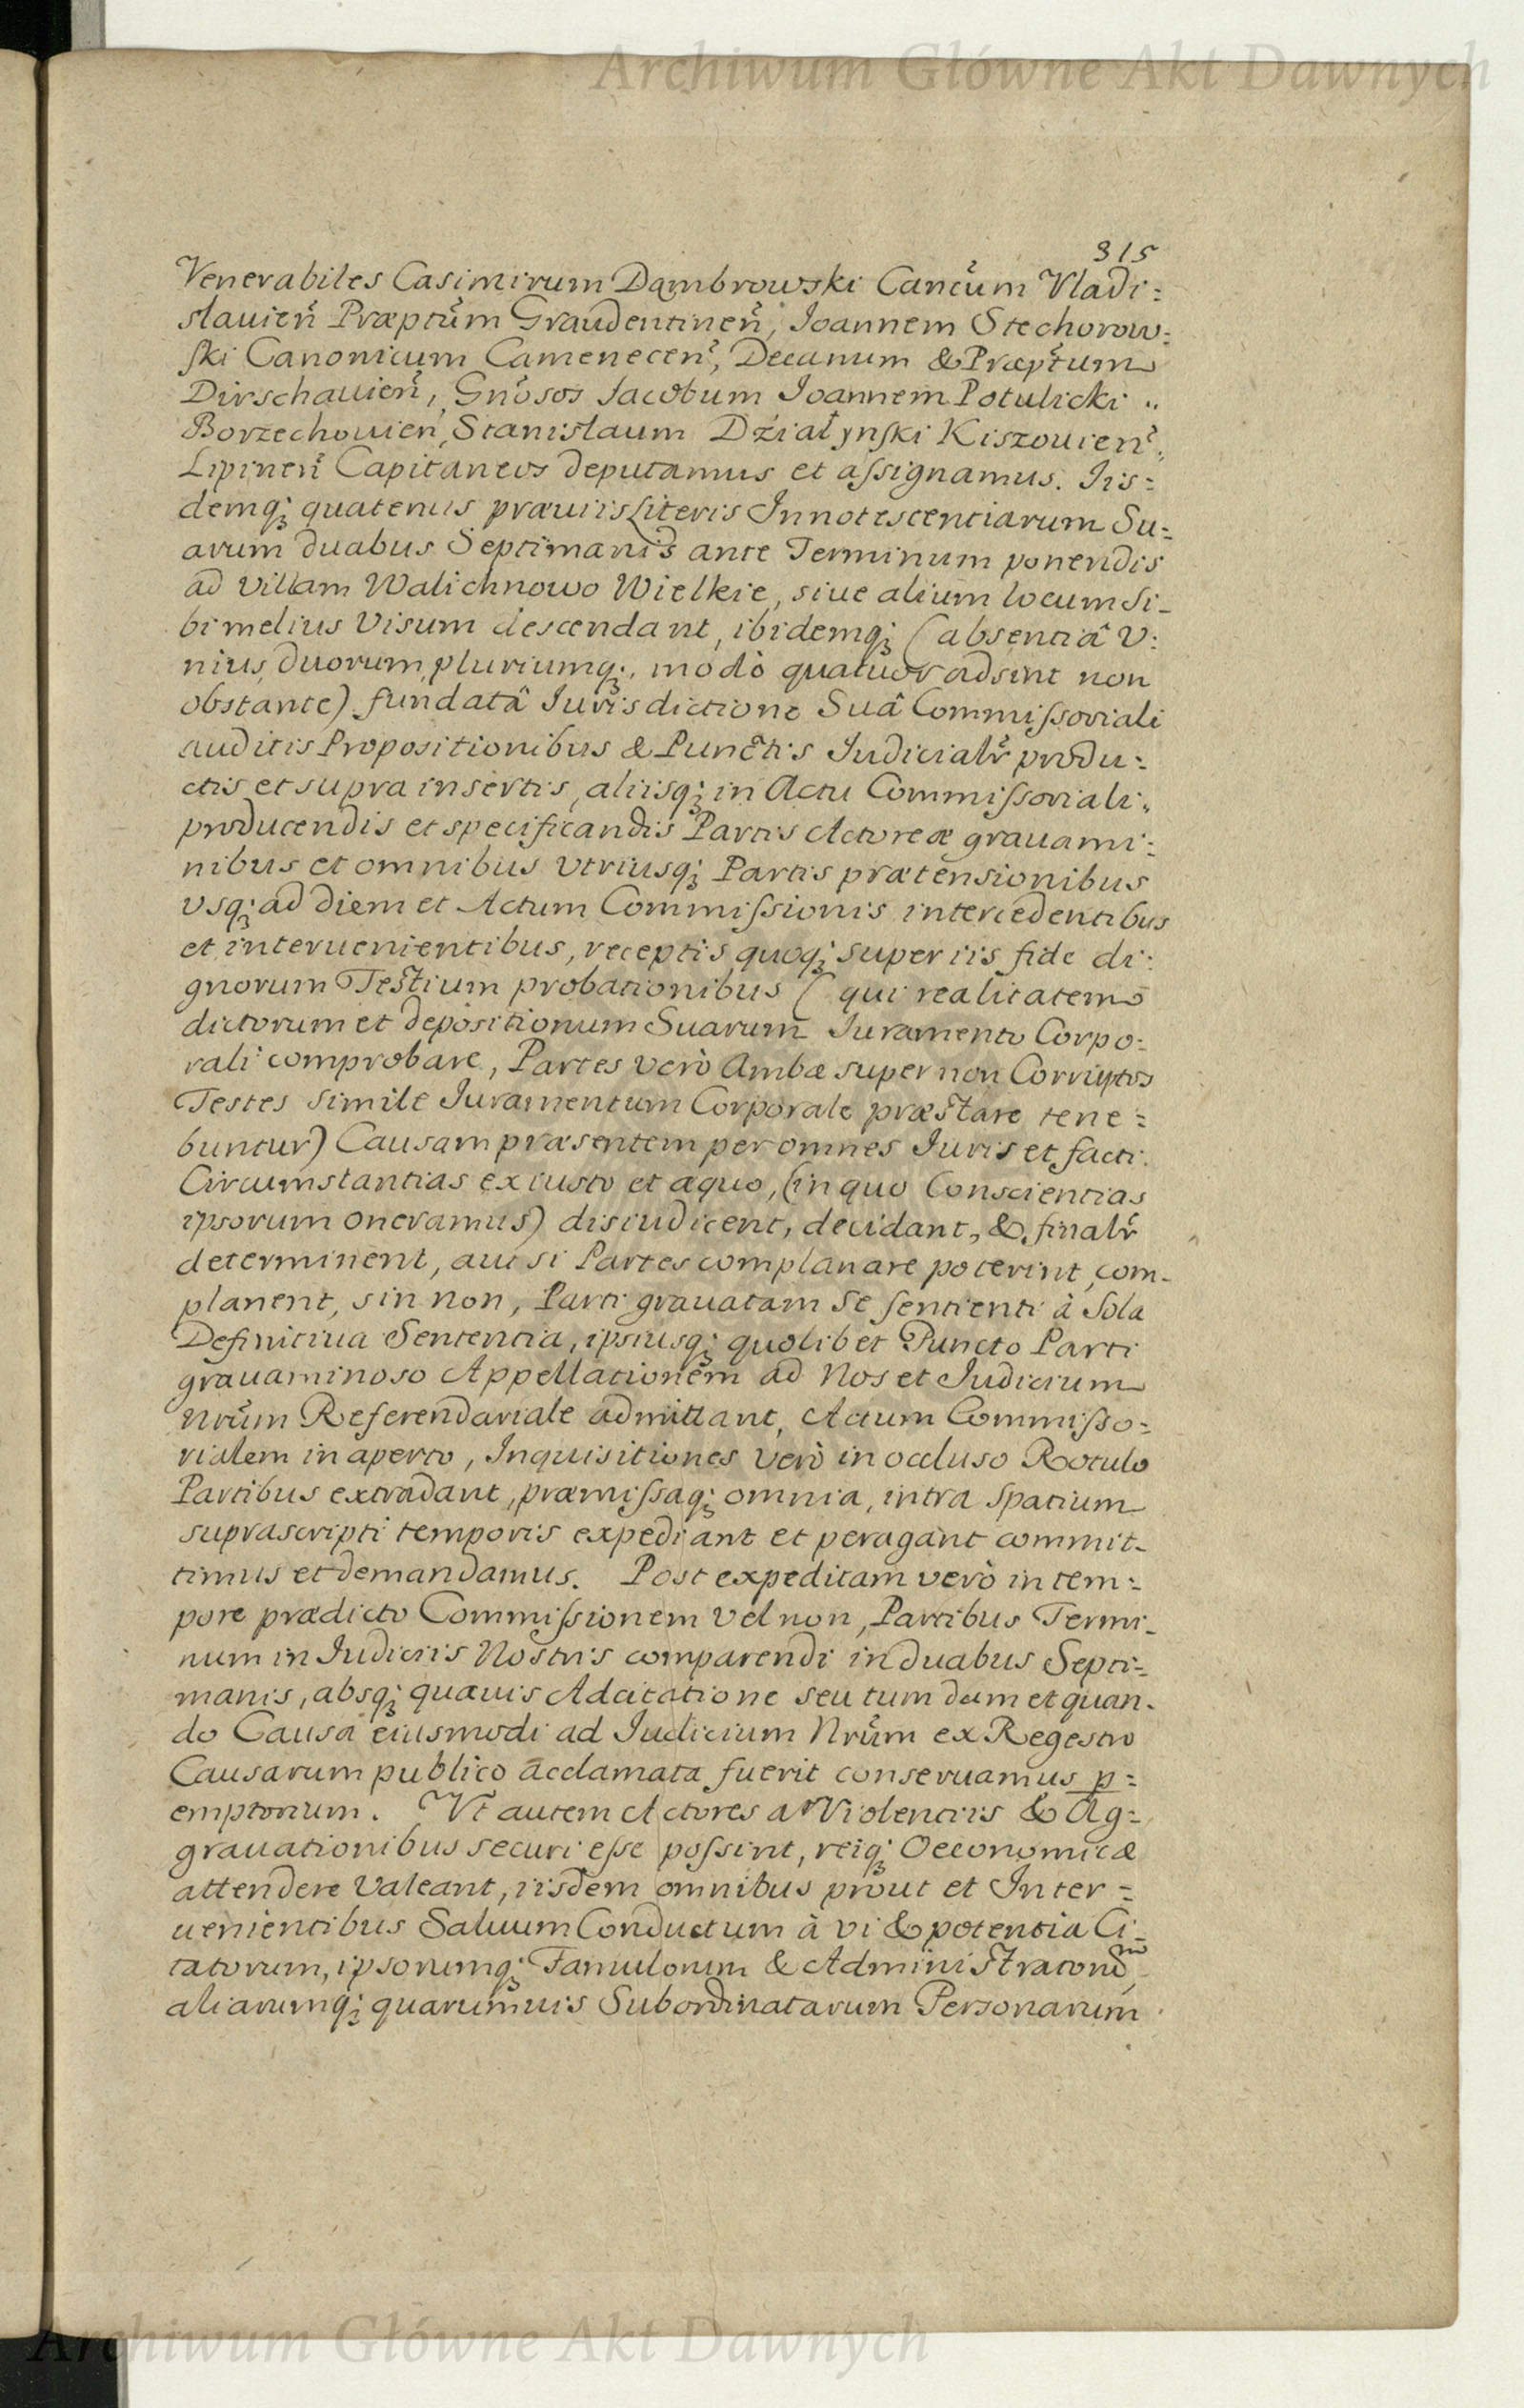 Archiwum Główne Akt Dawnych
315
Venerabiles Casimirum Dąmbrowski Canc̃um Vladi:
slauien̄ Præptũm Graudentinen̄, Ioannem Stechorow:
ſki Canonicum Camenecen̄, Decanum & Præpt̃um
Dirschauien̄, Gn̄osos Iacobum Ioannem Potulicki „
Borzechouien̄, Stanislaum Działynſki Kiszouien̄„
Lipinen̄ Capitaneos deputamus et aſsignamus. Iis:
demq; quatenus præuiis Literis Innotescentiarum Su:
arum duabus Septimanis ante Terminum ponendis
ad villam Walichnowo Wielkie, siue alium locum Si-
bi melius Visum descendant, ibidemq; (absentiâ V:
nius, duorum, pluriumq;, modò quatuor adsint non
obstante) fundatâ Iurisdictione Suâ Commiſsoriali
auditis Propositionibus & Punctis Iudicialr̃ produ:
ctis et supra insertis, aliisq; in Actu Commiſsoriali„
producendis et specificandis Partis Actoreæ grauami:
nibus et omnibus vtriusq; Partis prætensionibus
vsq; ad diem et Actum Commiſsionis intercedentibus
et interuenientibus, receptis quoq; super iis fide di:
gnorum Testium probationibus (qui realitatem
dictorum et depositionum Suarum Iuramento Corpo:
rali comprobare, Partes verò Ambæ super non Corruptos
Testes simile Iuramentum Corporale præstare tene:
buntur) Causam præsentem per omnes Iuris et facti
Circumstantias ex iusto et æquo, (in quo Conscientias
ipsorum oneramus) disiudicent, decidant, & finalr̃
determinent, aut si Partes complanare poterint, com-
planent, sin non, Parti grauatam Se sentienti à Sola
Definitiua Sententia, ipsiusq; quolibet Puncto Parti
grauaminoso Appellationem ad Nos et Iudicium
Nrũm Referendariale admittant, Actum Commiſso:
rialem in aperto, Inquisitiones verò in occluso Rotulo
Partibus extradant, præmiſsaq; omnia, intra Spatium
suprascripti temporis expediant et peragant commit-
timus et demandamus. Post expeditam verò in tem:
pore prædicto Commiſsionem vel non, Partibus Termi-
num in Iudiciis Nostris comparendi in duabus Septi-
manis, absq; quauis Adcitatione seu tum dum et quan-
do Causa eiusmodi ad Iudicium Nrũm ex Regestro
Causarum publico acclamata fuerit conseruamus p̱:
emptorium. Vt autem Actores a Violentiis & Ag:
grauationibus securi eſse poſsint, reiq; Oeconomicæ
attendere valeant, iisdem omnibus prout et Inter:
uenientibus Saluum Conductum à vi & potentia Ci-
tatorum, ipsorumq; Famulorum & Administratorũ,
aliarumq; quarumuis Subordinatarum Personarum
Archiwum Główne Akt Dawnych